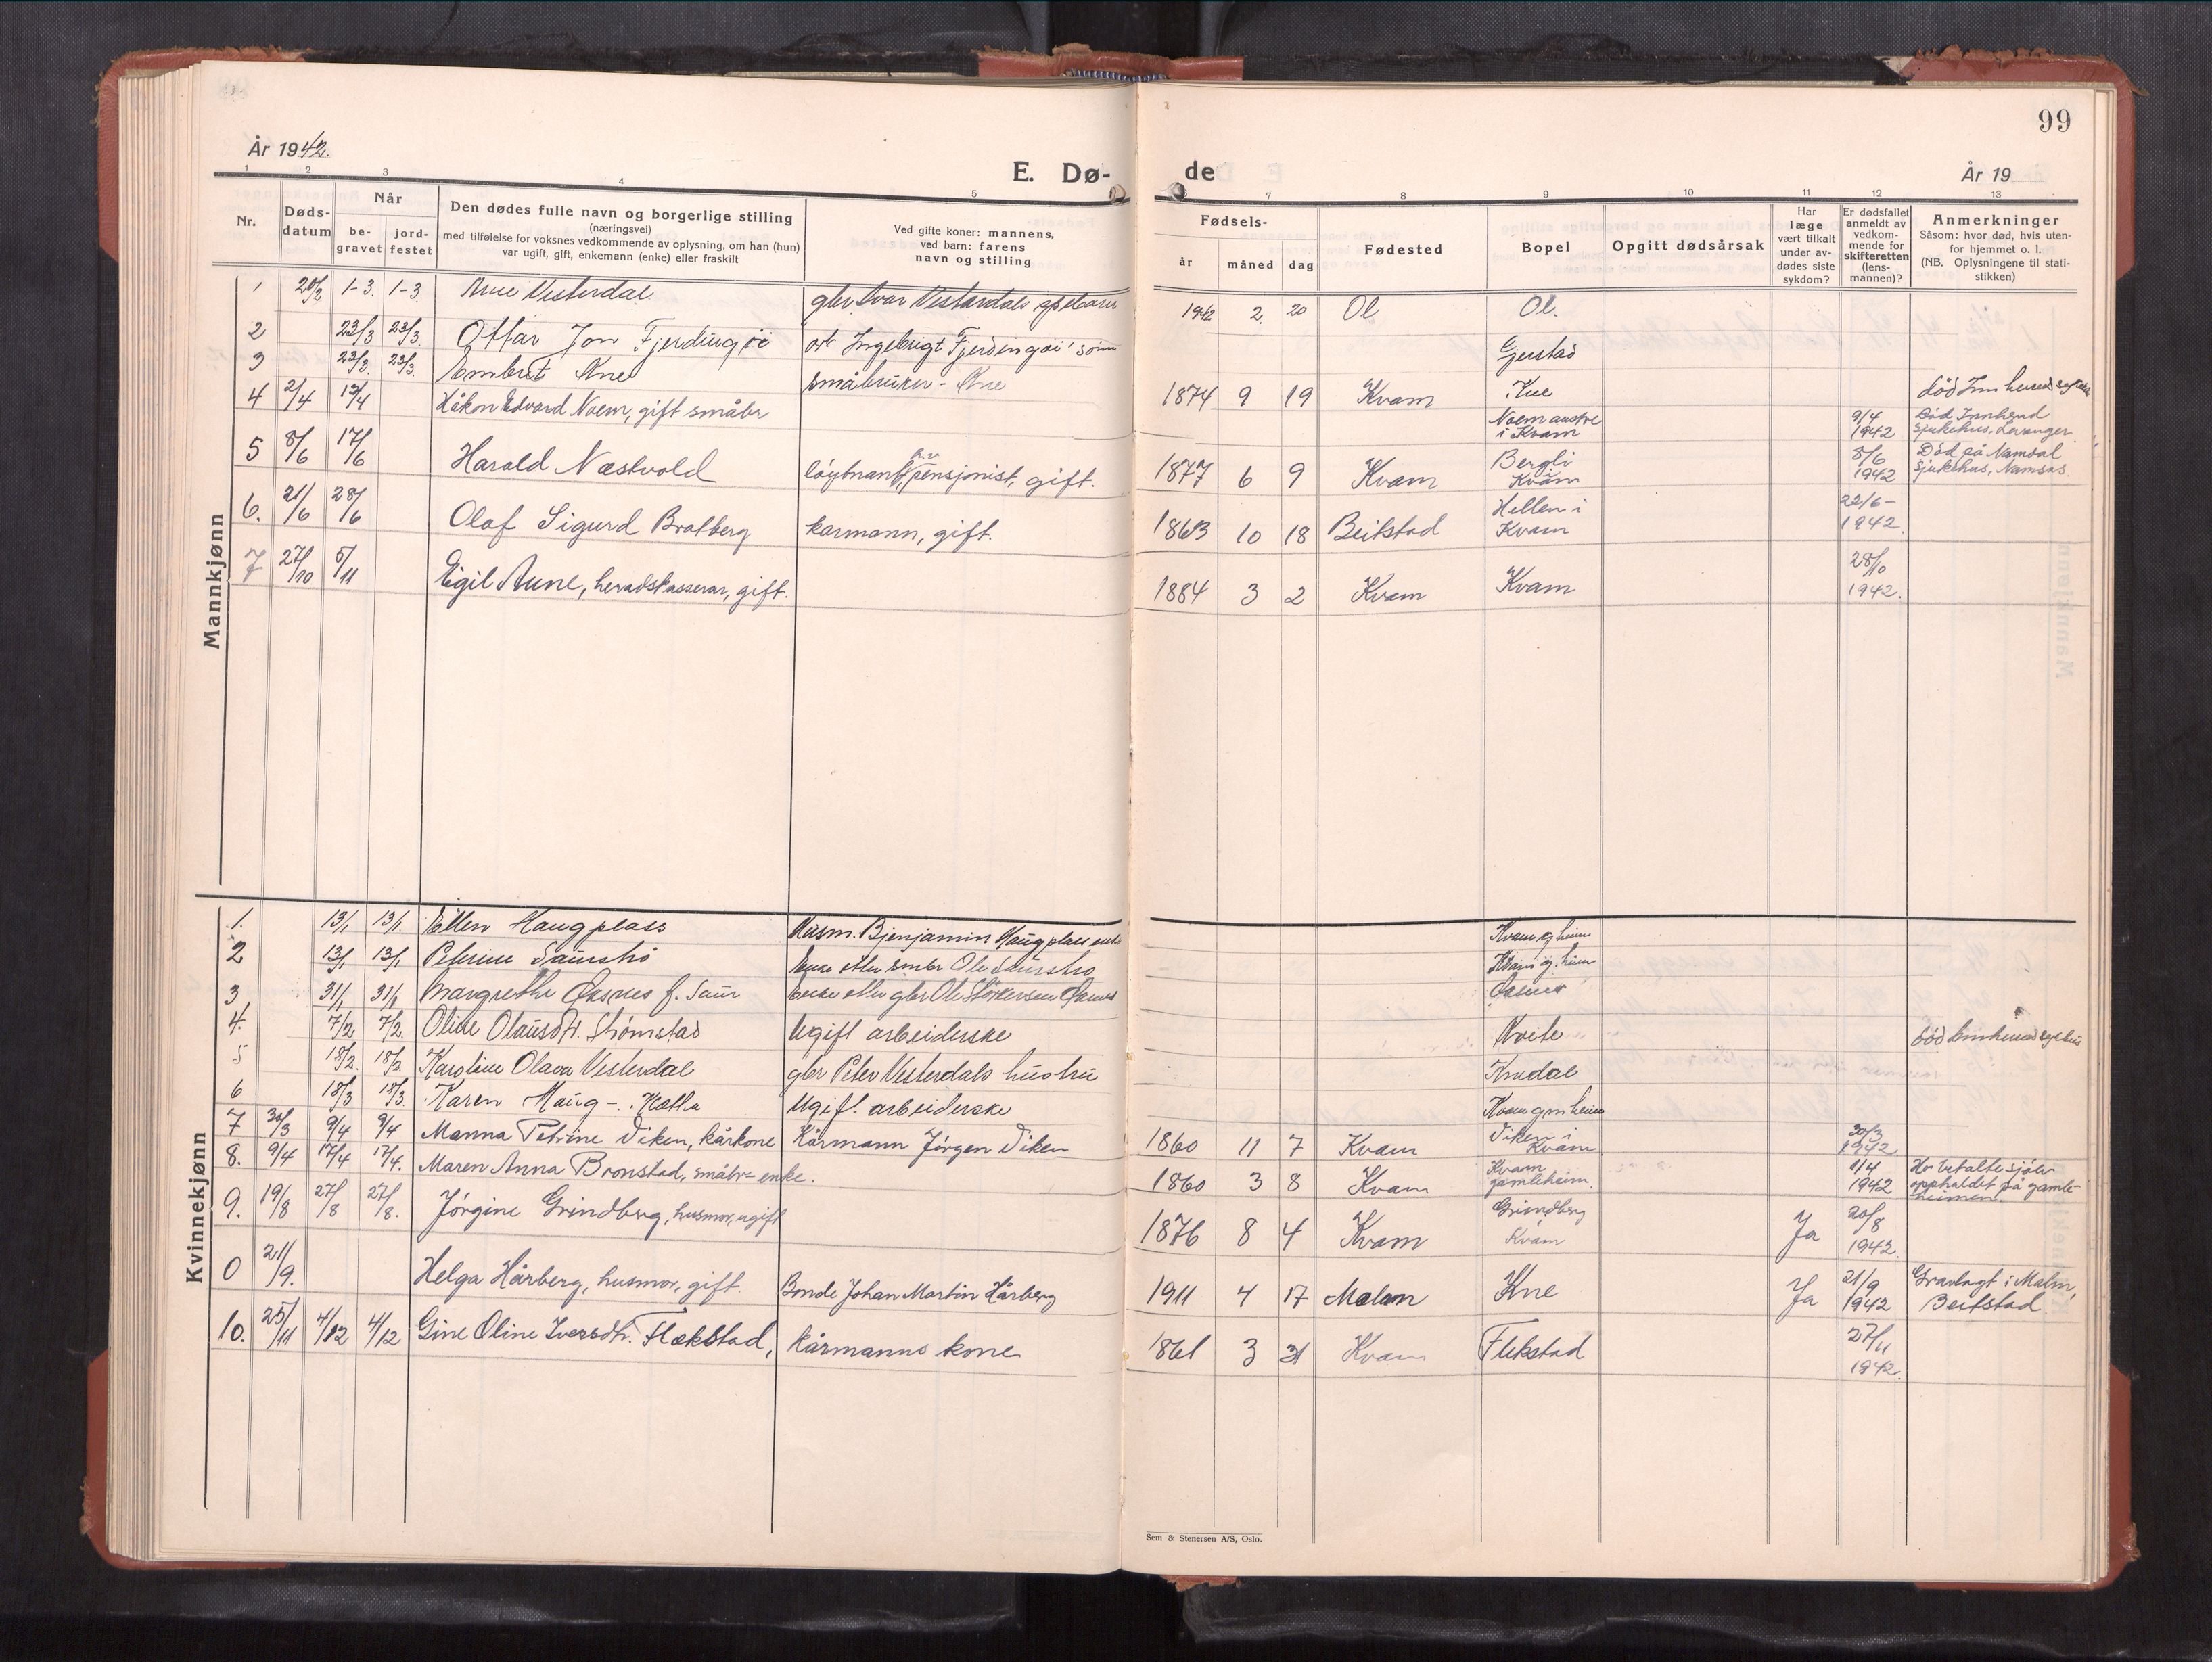 99
År 1942.
E. Dø-
de
År 19
1 2 3 4 5
6 7 8 9 10 11 12 13
Nr.
Døds-
datum
Når
be-
gravet
jord-
festet
Den dødes fulle navn og borgerlige stilling
(næringsvei)
med tilføielse for voksnes vedkommende av oplysning, om han (hun)
var ugift, gift, enkemann (enke) eller fraskilt
Ved gifte koner: mannens,
ved barn: farens
navn og stilling
Fødsels-
år måned dag
Fødested
Bopel
Opgitt dødsårsak
Har
læge
vært tilkalt
under av-
dødes siste
sykdom?
Er dødsfallet
anmeldt av
vedkom-
mende for
skifteretten
(lens-
mannen)?
Anmerkninger
Såsom: hvor død, hvis uten-
for hjemmet o. l.
(NB. Oplysningene til stati-
stikken)
Mannkjønn
1 20/2 1-3. 1-3. Vesterdal gbr. Ivar Vesterdals 1942 2. 20 Øl Øl.
2 23/3 23/3 Ottar Jon Fjerdingøi Ingebrigt Fjerdingøi sønn Gjerstad
3 23/3 23/3 Embret Kne småbruker - Kne 1874 9 19 Kvam Kne død Innherred sykehus
4 2/4 13/4 Håkon Edvard Noem, gift småbr Noem austre
i Kvam 9/4
1942 Død Innherred
sjukehus, Levanger
5 8/6 17/6 Harald Næstvold løytnant, pensjonist, gift. 1877 6 9 Kvam Bergli
Kvam 8/6
1942 Død på Namdal
sjukehus, Namsos.
6. 21/6 28/6 Olaf Sigurd Bratberg karmann, gift. 1863 10 18 Beitstad Hellem i
Kvam 22/6-
1942.
7 27/10 5/11 Eigil Aune, heradskasserar, gift. 1884 3 2 Kvam Kvam 28/10
1942.
Kvinnekjønn
1. 13/1 13/1 Ellen Haugplass Husm. Bjenjamin Haugplass enke Kvam g heim
2 13/1 13/1 Petrine Saurstrø Enke etter smbr Ole Saurstrø Kvam g. heim
3 31/1 31/1 Margrethe Øksnes f. Saur Enke etter gbr Ole Størkersen Øksnes Øksnes
4. 7/2 7/2. Oline Olausdtr. Strømstad Ugift arbeiderske Kvite død Innherred sykehus
5 18/2. 18/2 Karoline Olava Vesterdal gbr Peter Vesterdals hustru
6 18/3 18/3. Karen Haug - Ugift. arbeiderske Kvam gm heim
7 30/3 9/4 9/4 Manna Petrine Viken, kårkone Kårmann Jørgen Viken 1860 11 7 Kvam Viken i
Kvam 30/3
1942
8. 9/4 17/4 17/4. Maren Anna Bronstad, småbr- enke. 1860 3 8 Kvam Kvam
gamleheim. 11/4
1942 Ho betalte sjølv
opphaldet på gamle-
heimen.
9. 19/8 27/8 27/8. Jørgine Grindberg, husmor, ugift 1876 8 4 Kvam Grindberg
Kvam Ja 20/8
1942.
0 21/9. Helga Hårberg, husmor, gift. Bonde Johan Martin Hårberg 1911 4 17 Malm Kne Ja 21/9
1942 Gravlagt i Malm,
Beitstad
10. 25/11 4/12 4/12 Gine Oline Iversdtr. Flækstad, kårmanns kone 1861 3 31 Kvam Flekstad 27/11
1942.
Sem & Stenersen A/S, Oslo.